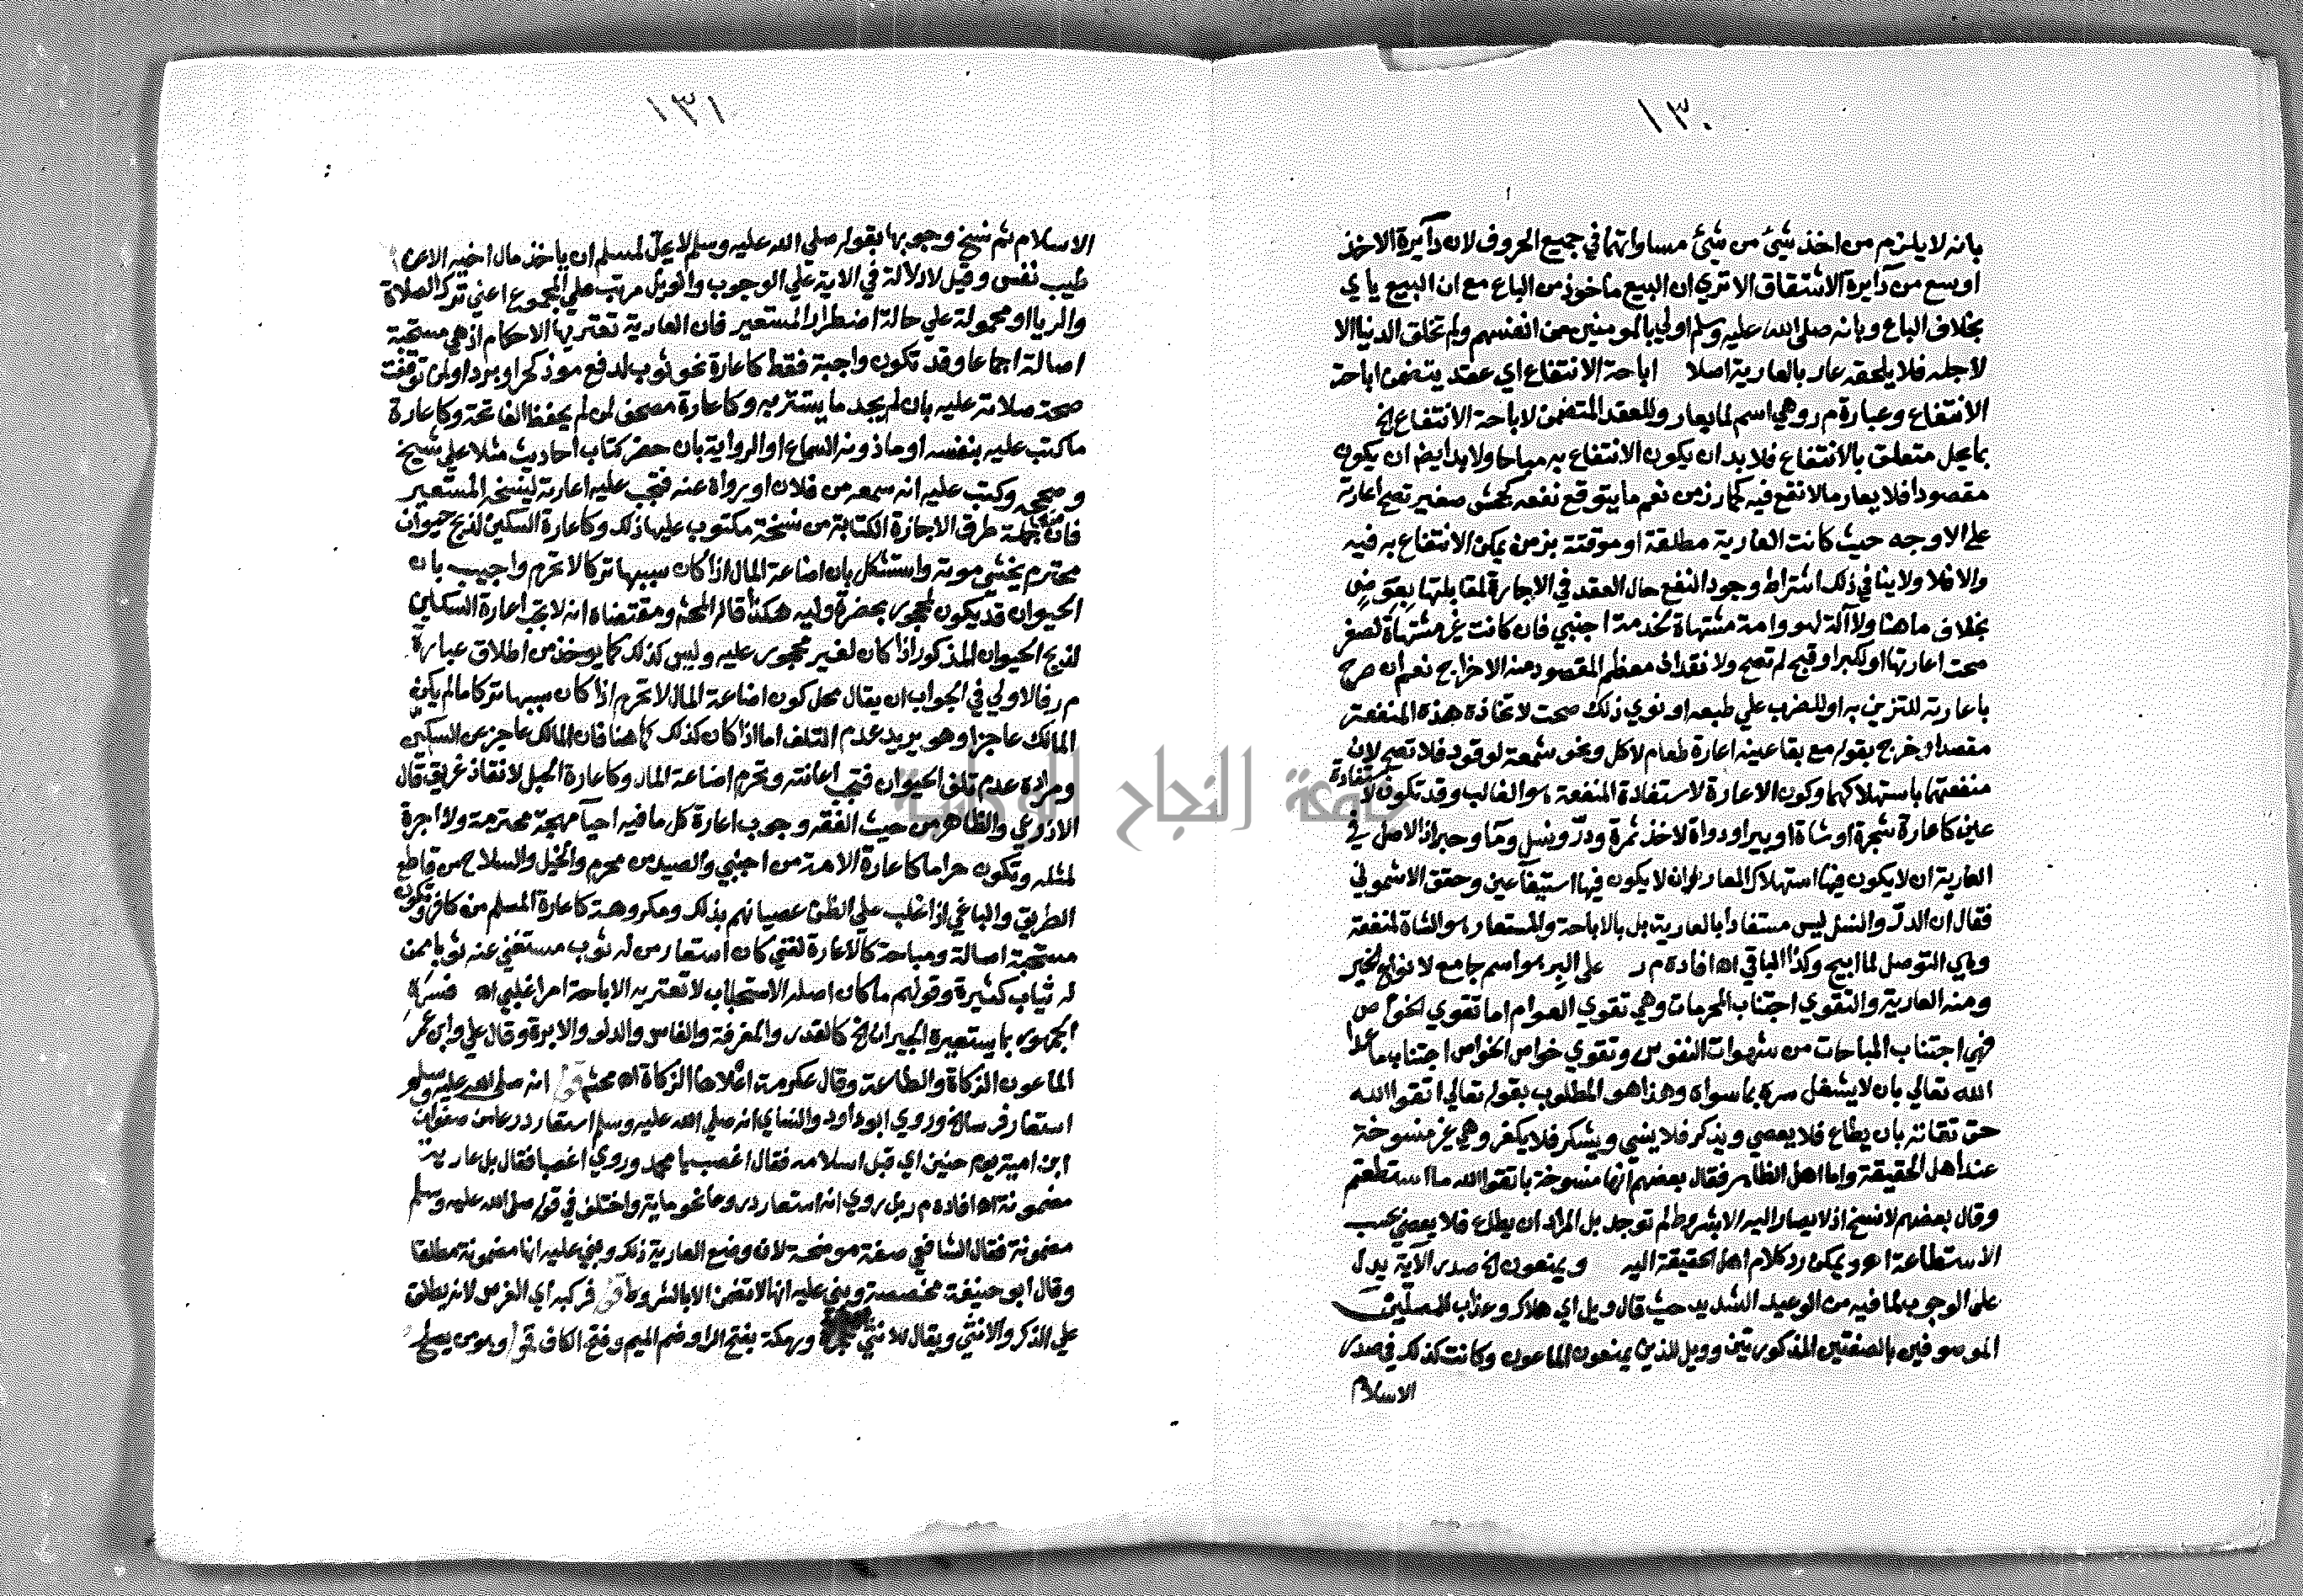 ١٣٠
بانه لا يلزم من اخذ شئ من شئ مساواتهما في جميع الحروف لان دايرة الاخذ
اوسع من دآيرة الاشتقاق الاتري ان البيع ماخوذ من الباع مع ان البيع ياي
بخلاف الباع وبانه صلى الله عليه وسلم اولي بالمومنين من انفسهم ولم تخلق الدنيا الا
لاجله فلا يلحقه عار بالعارية اصلا اباحة الانتفاع اي عقد يتضمن اباحة
الانتفاع وعبارة م ر وهي اسم لما يعار وللعقد المتضمن لاباحة الانتفاع الخ
بما يحل متعلق بالانتفاع فلا بد ان يكون الانتفاع به مباحا ولا بد ايضا ان يكون
مقصودا فلا يعار مالا نفع فيه كحمار زمن نعم ما يتوقع نفعه كجحش صغير تصح اعارته
على الاوجه حيث كانت العارية مطلقة او موقتة بزمن يمكن الانتفاع به فيه
والا فلا ولا ينافي ذلك اشتراط وجود النفع حال العقد في الاجارة لمقابلتها بعوض
بخلاف ما هنا ولا آلة لهو وامة مشتهاة لخدمة اجنبي فان كانت غير مشتهاة لصغر
صحت اعارتها او لكبر او قبح لم تصح ولا نقدا اذ معظم المقصود منه الاخراج نعم ان صرح
باعارته للتزين به او للضرب علي طبعه او نوي ذلك صحت لاتخاذه هذه المنفعة
مقصدا وخرج بقوله مع بقا عينه اعارة طعام لاكل ونحو شمعة لوقود فلا تصح لان
منفعتها باستهلاكهما وكون الاعارة لاستفادة المنفعة هو الغالب وقد تكون لاستفادة
عين كاعارة شجرة او شاة او بير او دواة لاخذ ثمرة ودرّ ونسل ومآ وحبر اذ الاصل في
العارية ان لا يكون فيها استهلاك المعار وان لا يكون فيها استيفآ عين وحقق الاشموني
فقال ان الدرّ والنسل ليس مستفادا بالعارية بل بالاباحة والمستعار هو الشاة لمنفعة
وهي التوصل لما ابيح وكذا الباقي اه افاده م ر على البر هو اسم جامع لانواع الخير
ومنه العارية والتقوي اجتناب المحرمات وهي تقوي العوام اما تقوي الخواص
فهي اجتناب المباحات من شهوات النفوس وتقوي خواص الخواص اجتناب ما عدا
الله تعالي بان لا يشغل سره بما سواه وهذا هو المطلوب بقوله تعالي اتقوا الله
حق تقاته بان يطاع فلا يعصي ويذكر فلا ينسي ويشكر فلا يكفر وهي غير منسوخة
عند اهل الحقيقة واما اهل الظاهر فقال بعضهم انها منسوخة باتقوا الله ما استطعتم
وقال بعضهم لا نسخ اذ لا يصار اليه الا بشروط لم توجد بل المراد ان يطاع فلا يعصي بحسب
الاستطاعة اه ويمكن رد كلام اهل الحقيقة اليه ويمنعون الخ صدر الآية يدل
على الوجوب لما فيه من الوعيد الشديد حيث قال ويل اي هلاك وعذاب للمصلين
الموصوفين بالصفتين المذكورتين وويل للذين يمنعون الماعون وكانت كذلك في صدر
الاسلام
١٣١
الاسلام ثم نسخ وجوبها بقوله صلي الله عليه وسلم لا يحل لمسلم ان ياخذ مال اخيه الا عن
طيب نفس وقيل لا دلالة في الاية علي الوجوب والويل مرتب علي المجموع اعني ترك الصلاة
والريا او محمولة علي حالة اضطرار المستعير فان العارية تعتريها الاحكام اذ هي مستحبة
اصالة اجماعا وقد تكون واجبة فقط كاعارة نحو ثوب لدفع موذ كحر او برد او لمن توقفت
صحة صلاته عليه بان لم يجد ما يستتر به وكاعارة مصحف لمن لم يحفظ الفاتحة وكاعارة
ما كتب عليه بنفسه او ماذونه السماع او الرواية بان حضر كتاب احاديث مثلا علي شيخ
وصححه وكتب عليه انه سمعه من فلان او رواه عنه فتجب عليه اعارته لينسخه المستعير
فان من جملة طرق الاجازة الكتابة من نسخة مكتوب عليها ذلك وكاعارة السكين لذبح حيوان
محترم يخشي موته واستشكل بان اضاعة المال اذا كان سببها تركا لا تحرم واجيب بان
الحيوان قد يكون لمحجور بحضرة وليه هكذا قاله المحشي ومقتضاه انه لا تجب اعارة السكين
لذبح الحيوان المذكور اذا كان لغير محجور عليه وليس كذلك كما يوخذ من اطلاق عبارة
م ر فالاولي في الجواب ان يقال محل كون اضاعة المال لا تحرم اذا كان سببها تركا ما لم يكن
المالك عاجزا وهو يريد عدم التلف اما اذا كان كذلك كما هنا فان المالك عاجز عن السكين
ومراده عدم تلف الحيوان فتجب اعانته وتحرم اضاعة المال وكاعارة الحبل لانقاذ غريق قال
الاذرعي والظاهر من حيث الفقه وجوب اعارة كل ما فيه احيآ مهجة محترمة ولا اجرة
لمثله وتكون حراما كاعارة الامة من اجنبي والصيد من محرم والخيل والسلاح من قاطع
الطريق والباغي اذا غلب علي الظن عصيانهم بذلك ومكروهة كاعارة المسلم من كافر وتكون
مستحبة اصالة ومباحة كالاعارة لغني كان استعار من له ثوب مستغني عنه ثوبا ممن
له ثياب كثيرة وقولهم ما كان اصله الاستحباب لا تعتريه الاباحة امر اغلبي اه فسره
الجمهور بما يستعيره الجيران الخ كالقدر والمغرفة والفاس والدلو والابرة وقال علي وابن عمر
الماعون الزكاة والطاعة وقال عكرمة اعلاها الزكاة اه محشي قوله انه صلى الله عليه وسلم
استعار فرسا الخ وروي ابو داود والنساي انه صلي الله عليه وسلم استعار درعا من صفوان
ابن امية يوم حنين اي قبل اسلامه فقال اغصب يا محمد وروي اغصبا فقال بل عارية
مضمونة اه افاده م ر بل روي انه استعار دروعا نحو ماية واختلف في قوله صلى الله عليه وسلم
مضمونة فقال الشافعي صفة موضحة لان وضع العارية ذلك وبني عليه انها مضمونة مطلقا
وقال ابو حنيفة مخصصة وبني عليه انها لا تضمن الا بالشروط قوله فركبه اي الفرس لانه يطلق
علي الذكر والانثي ويقال للانثي ورمكة بفتح الرا وضم الميم وفتح الكاف قوله وهو من يصلح
جامعة النجاح الوطنية